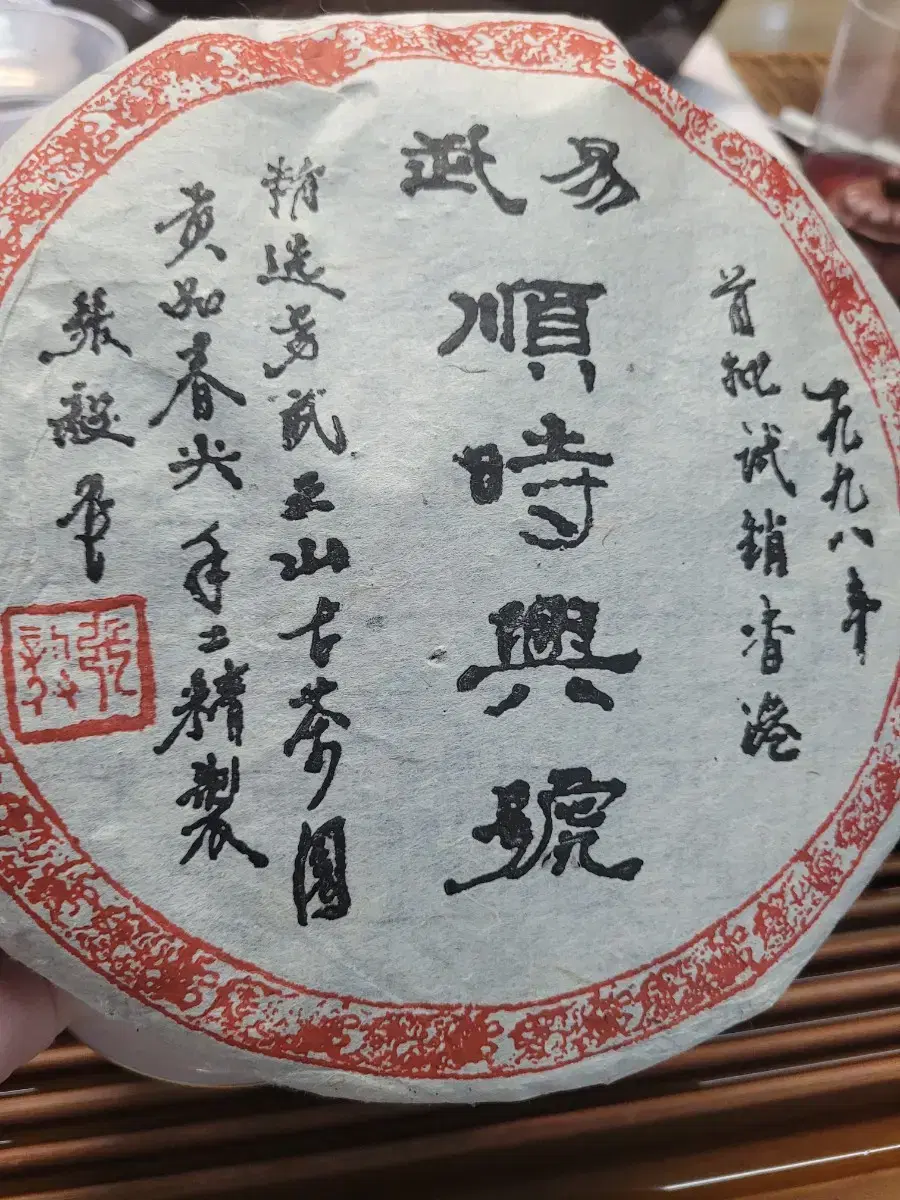 一九九八年
首批试销香港
易武
順時興號
精选易武正山古茶園
贡品春尖 手工精製
張毅
张毅